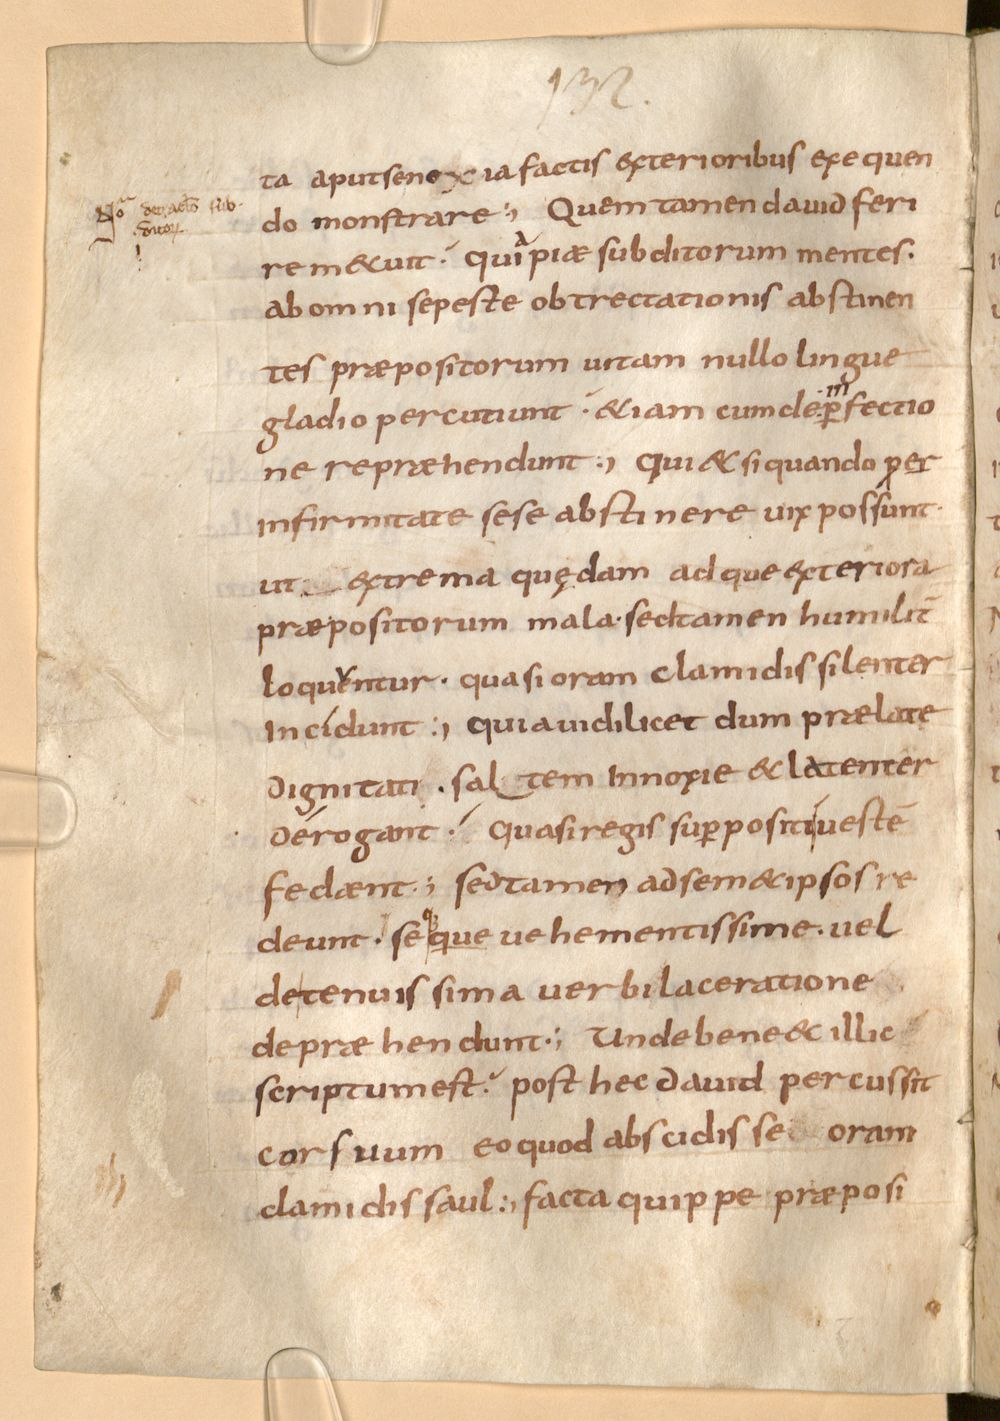 132.
ta aput se noxia factis exterioribus exequen
do monstrare :, Quem tamen david feri
re m&uit · quia piæ subditorum mentes ·
ab omni se peste obtrectationis abstinen
tes præpositorum uitam nullo lingue
gladio percutiunt · &iam cum de imperfectio
ne repræhendunt :, Qui & si quando per
infirmitate sese abstinere uix possunt ·
ut extrema quędam adque exteriora
præpositorum mala · sed tamen humilit̄
loquuntur · quasi oram clamidis silenter
incidunt :, quia uidilicet dum prælate
dignitati · saltem innoxie & latenter
derogant · Quasi regis sup̱positi uestē
fedænt ·; sed tamen ad sem&ipsos re
deunt · seque vehementissime · vel
de tenuissima verbi laceratione
depræhendunt ·; Unde bene & illic
scriptum est · post hec david percussit
cor suum eo quod abscidisse oram
clamidis saul :, facta quippe præposi